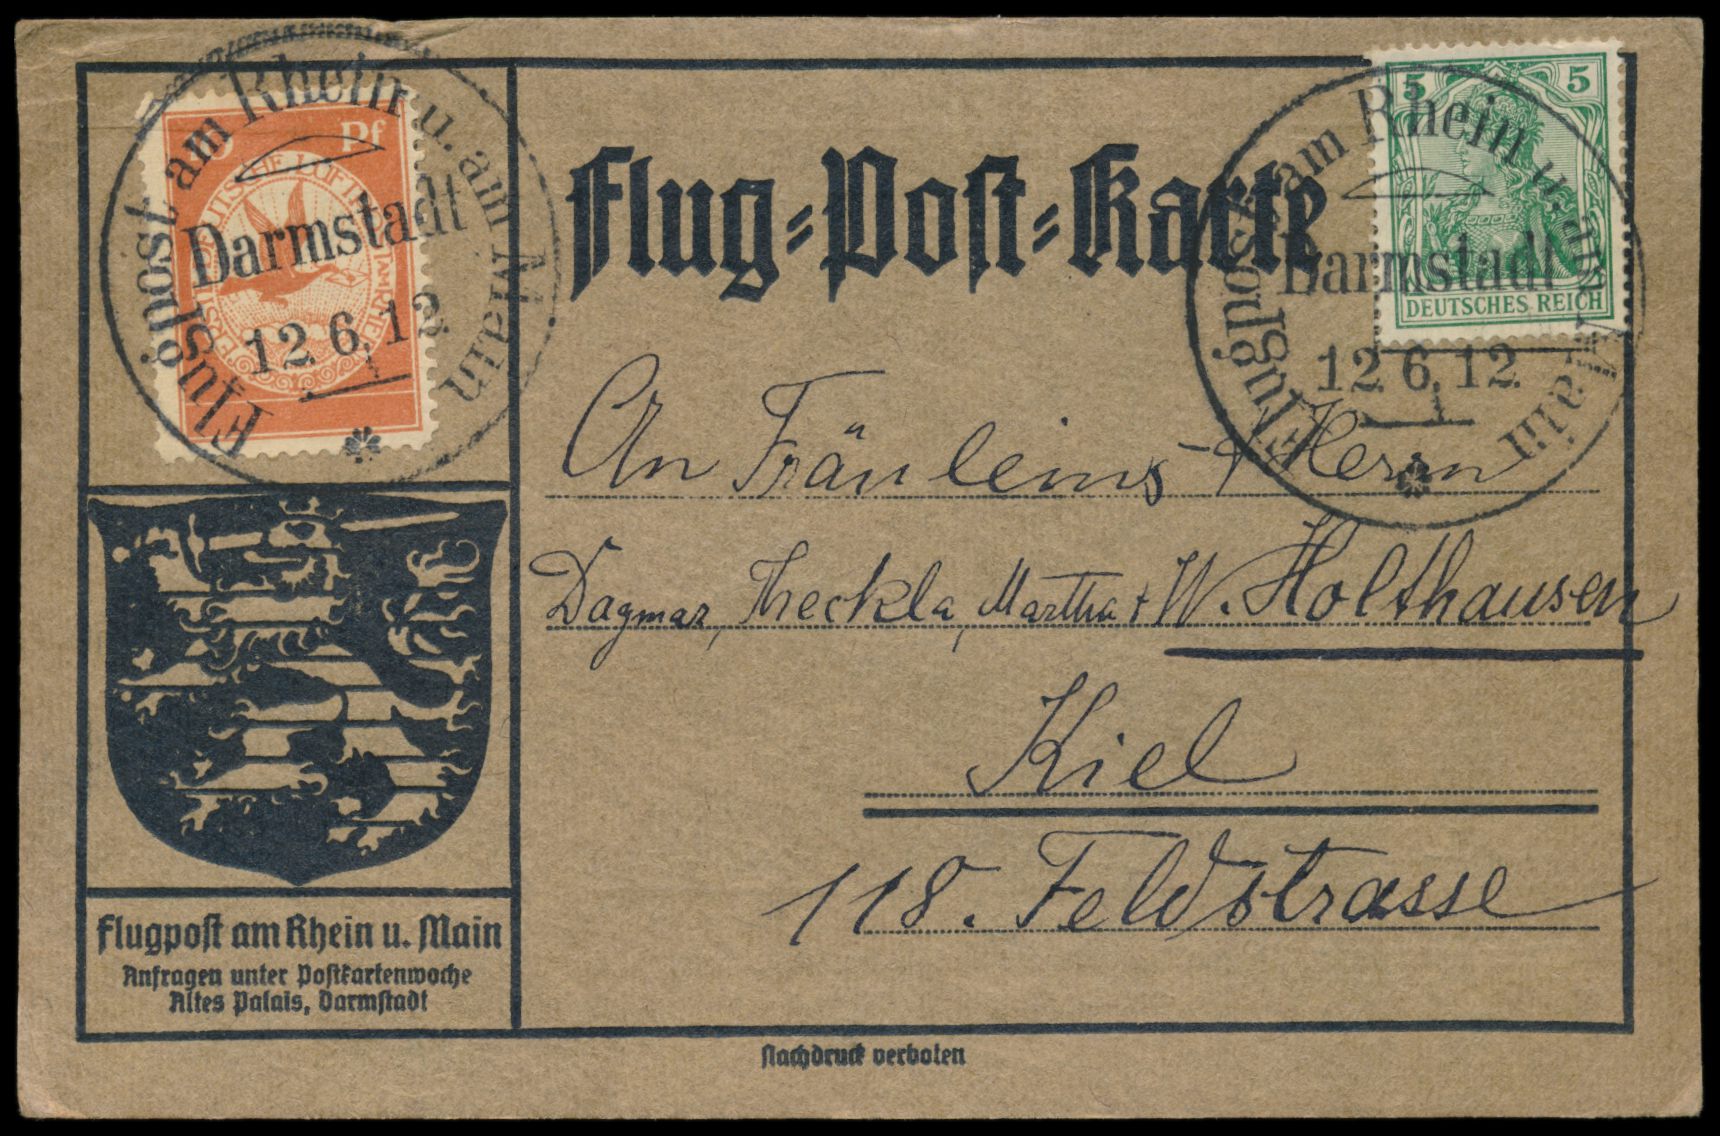 Flugpost am Rhein u. am Main
Darmstadt
12.6.12
Pf
Flug=Post=Karte
Flugpost am Rhein u. am Main
Darmstadt
12.6.12.
5 5
DEUTSCHES REICH
An Fräuleins + Herrn
Dagmar, Theckla, Martha + W. Holthausen
Kiel
118. Feldstrasse
Flugpost am Rhein u. Main
Anfragen unter Postkartenwoche
Altes Palais, Darmstadt
Nachdruck verboten